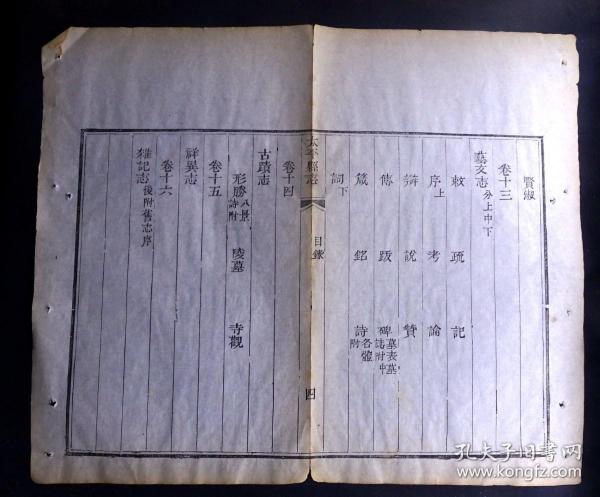 賢淑
卷十三
藝文志 分上中下
敕 疏 記
序上 考 論
辯 說 贊
傳 跋 碑 墓表墓誌附中
箴 銘 詩 各體附
詞下
太平縣志
目錄
四
卷十四
古蹟志
形勝 八景詩附 陵墓 寺觀
卷十五
祥異志
卷十六
雜記志 後附舊志序
孔夫子旧书网
www.kongfz.com